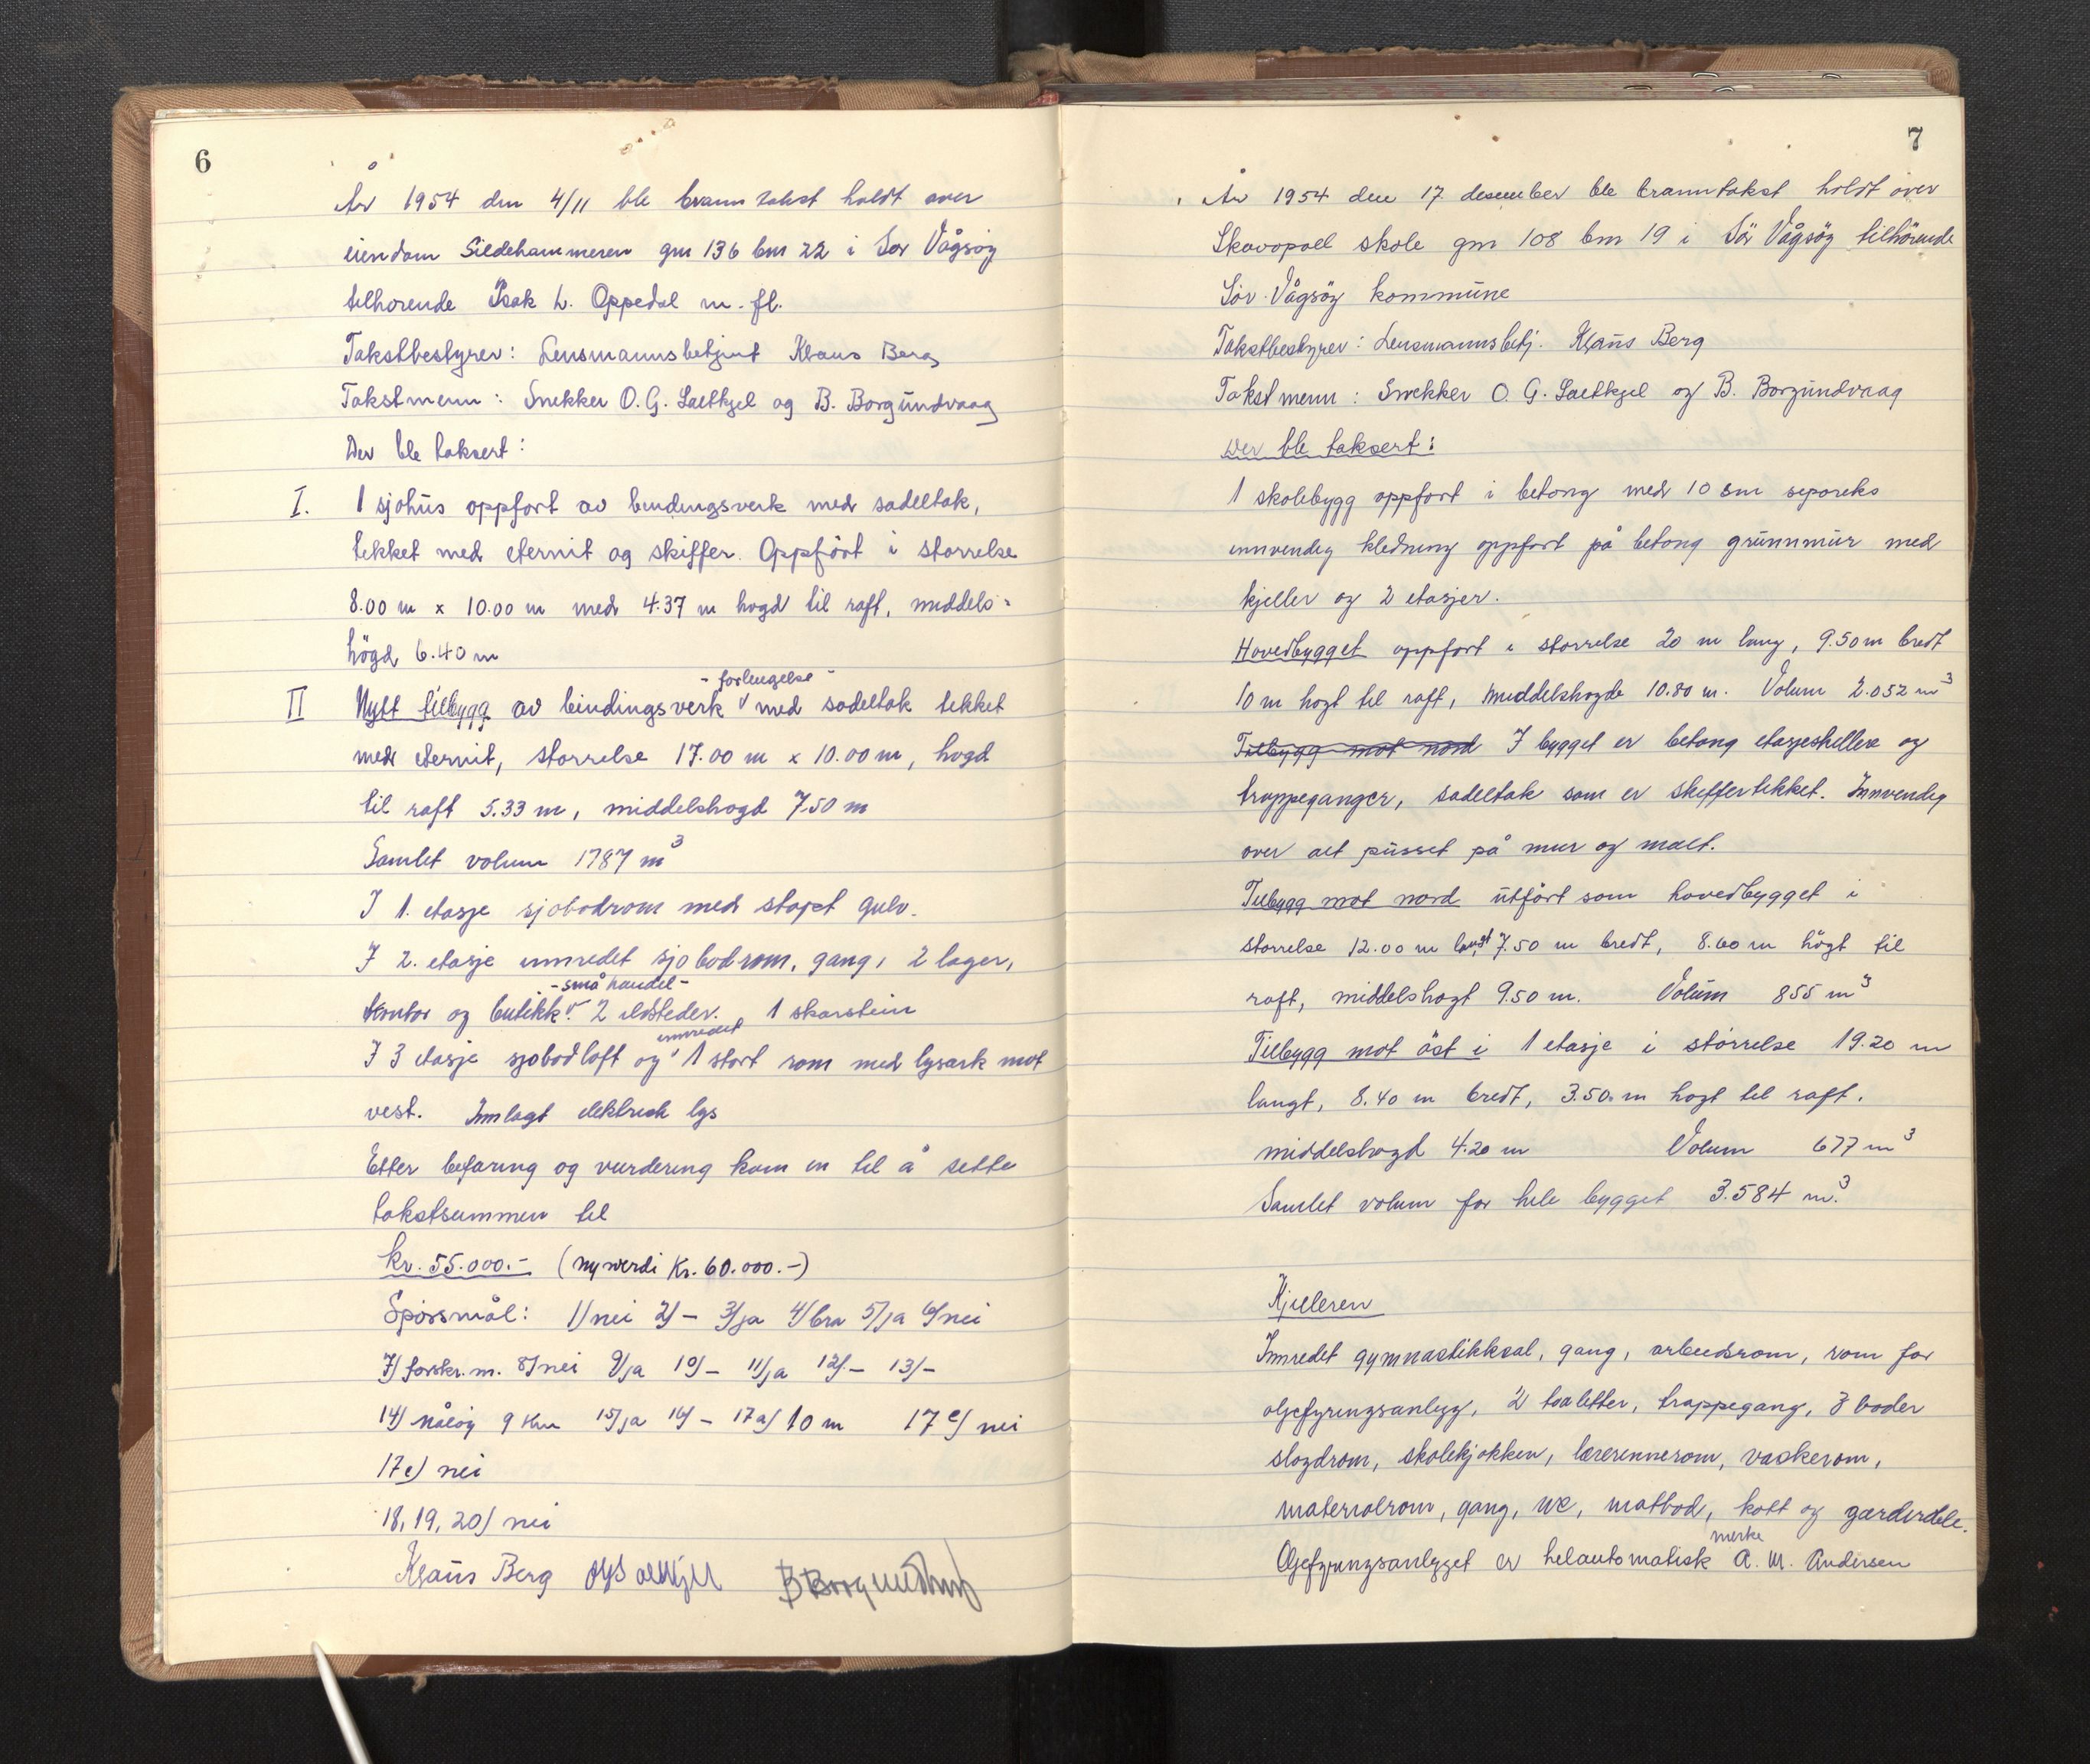 6
År 1954 den 4/11 ble branntakst holdt over
eiendom Sildehammeren gnr 136 bnr 22 i Sør Vågsøy
tilhørende Isak L. Oppedal m. fl.
Takstbestyrer: Lensmannsbetjent Klaus Berg
Takstmenn: Snekker O. G. Saltkjel og B. Borgundvaag
Der ble taksert:
I. 1 sjøhus oppført av bindingsverk med sadeltak,
tekket med eternit og skiffer. Oppført i størrelse
8.00 m x 10.00 m med 4.37 m høgd til raft, middels-
högd 6.40 m
- forlengelse -
II Nytt tilbygg av bindingsverk v med sadeltak tekket
med eternit, størrelse 17.00 m x 10.00 m, høgd
til raft 5.33 m, middelshøgd 7.50 m
Samlet volum 1787 m³
I 1. etasje sjøbodrom med støpt gulv.
I 2. etasje innredet sjøbodrom, gang, 2 lager,
- små handel -
kontor og butikk v. 2 ildsteder. 1 skorstein
innredet
I 3 etasje sjøbodloft og v 1 stort rom med lysark mot
vest. Innlagt elektrisk lys
Etter befaring og vurdering kom en til å sette
takstsummen til
kr. 55.000.- (nyverdi Kr. 60.000.-)
Spørsmål: 1) nei 2) - 3) ja 4) bra 5) ja 6) nei
7) forskr. m. 8) nei 9) ja 10) - 11) ja 12) - 13) -
14) Måløy 9 km 15) ja 16) - 17a) 10 m 17c) nei
17e) nei
18, 19, 20) nei
Klaus Berg OGSaltkjel BBorgundvaag
7
År 1954 den 17. desember ble branntakst holdt over
Skavøpoll skole gnr 108 bnr 19 i Sør Vågsøy tilhørende
Sør-Vågsøy kommune
Takstbestyrer: Lensmannsbetj. Klaus Berg
Takstmenn: Snekker O. G. Saltkjel og B. Borgundvaag
Der ble taksert:
1 skolebygg oppført i betong med 10 sm seporeks
innvendig kledning oppført på betong grunnmur med
kjeller og 2 etasjer.
Hovedbygget oppført i størrelse 20 m lang, 9.50 m bredt
10 m høgt til raft, middelshøgde 10.80 m. Volum 2.052 m³
Tilbygg mot nord I bygget er betong etasjeskiller og
trappeganger, sadeltak som er skiffertekket. Innvendig
over alt pusset på mur og malt.
Tilbygg mot nord utført som hovedbygget i
størrelse 12.00 m langt, 7.50 m bredt, 8.60 m högt til
raft, middelshøgt 9.50 m. Volum 855 m³
Tilbygg mot öst i 1 etasje i størrelse 19.20 m
langt, 8.40 m bredt, 3.50 m høgt til raft.
middelshøgd 4.20 m Volum 677 m³
Samlet volum for hele bygget 3.584 m³.
Kjelleren
Innredet gymnastikksal, gang, arbeidsrom, rom for
oljefyringsanlegg, 2 toaletter, trappegang, 3 boder
sløydrom, skolekjøkken, lærerinnerom, vaskerom,
materialrom, gang, wc, matbod, kott og garderobe.
merke
Oljefyringsanlegget er helautomatisk A. M. Andersen